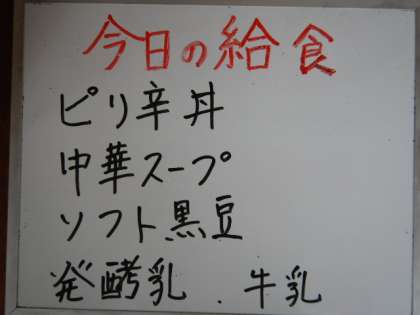 今日の給食
ピリ辛丼
中華スープ
ソフト黒豆
発酵乳.牛乳